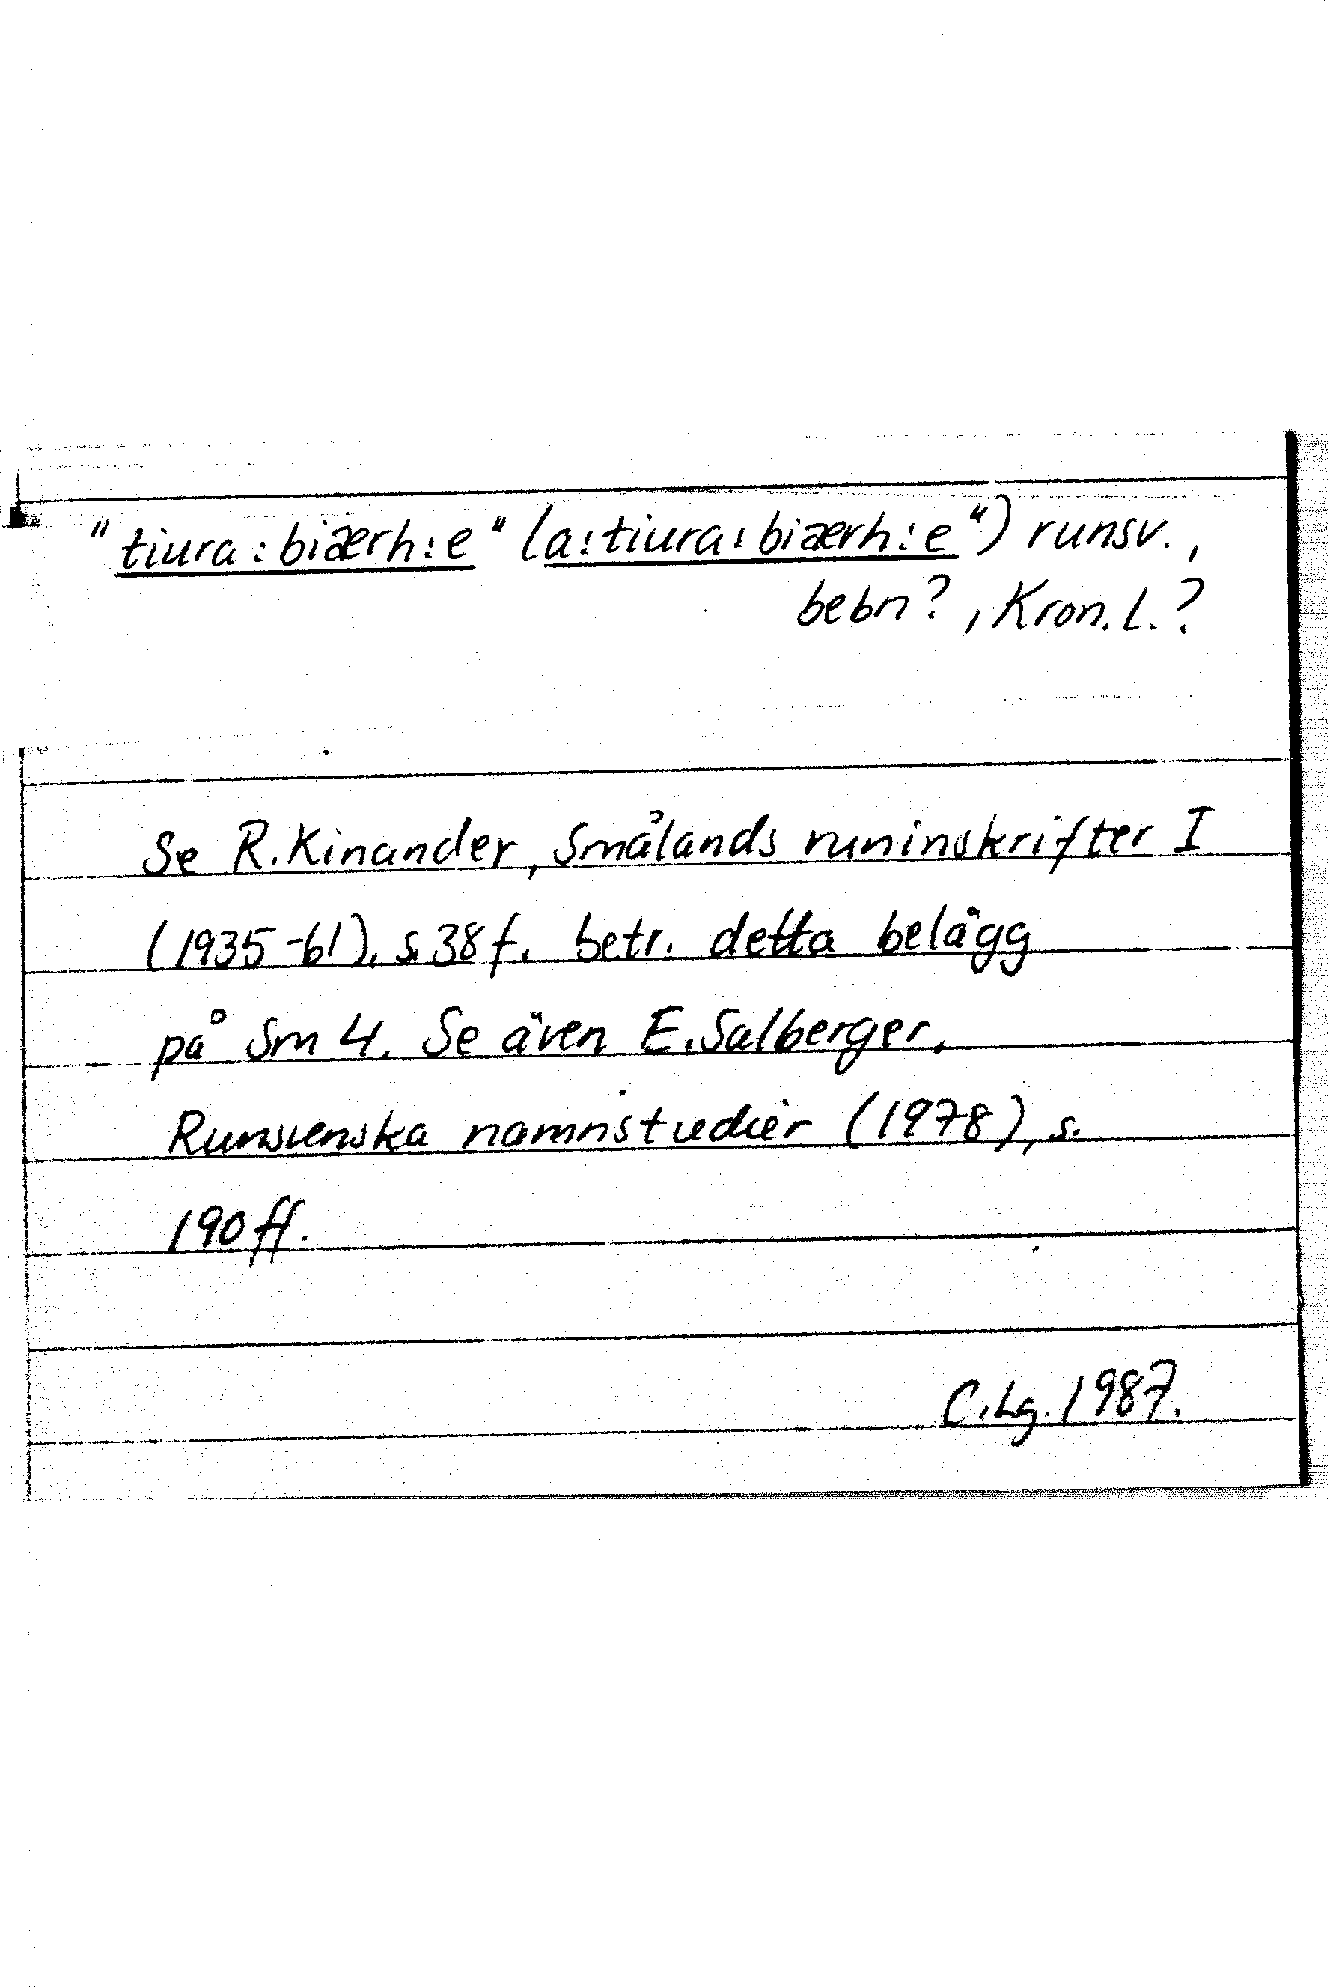 "tiura:biærh:e" (a:tiura:biærh:e") runsv.,
bebn?, Kron.l.?
Se R.Kinander, Smålands runinskrifter I
(1935-61), s.38f. betr. detta belägg
på Sm 4. Se även E.Salberger,
Runsvenska namnstudier (1978), s.
190ff.
C.Lg. 1987.